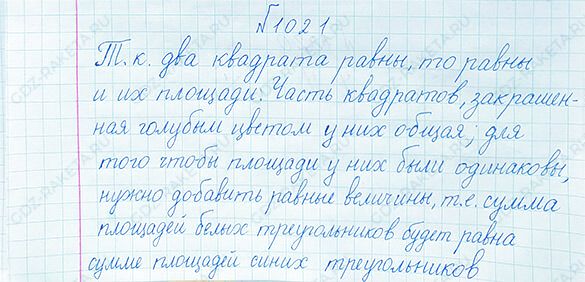 №1021
Т. к. два квадрата равны, то равны
и их площади. Часть квадратов, закрашен-
ная голубым цветом у них общая, для
того чтобы площади у них были одинаковы,
нужно добавить равные величины, т.е. сумма
площадей белых треугольников будет равна
сумме площадей синих треугольников